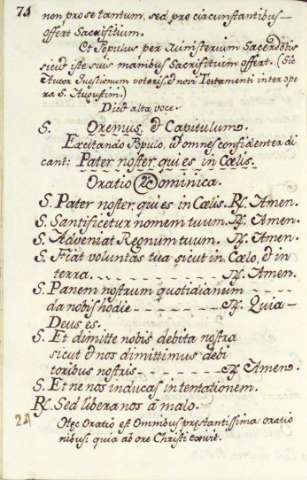 71
non pro se tantum, sed pro circumstantibus
offert Sacrifitium.
Et Populus per Ministerium Sacerdotis
sicut iste suis manibus Sacrifitium offert. (Sic
Auctor Quæstionum veteris, et novi Testamenti inter ope
ra S. Augustini.)
Dicit alta voce.
S. Oremus, et Capitulum.
Excitando Populo, et omnes confidenter di
cant: Pater noster, qui es in Cœlis.
Oratio Dominica.
S. Pater noster, qui es in Cœlis. ℟. Amen.
S. Santificetur nomem tuum. ℟. Amen.
S. Adveniat Regnum tuum. ℟. Amen.
S. Fiat voluntas tua sicut in Cælo, et in
terra. ℟. Amen.
S. Panem nostrum quotidianum
da nobis hodie ℟. Quia
Deus es.
S. Et dimitte nobis debita nostra
sicut et nos dimittimus debi
toribus nostris ℟. Amen.
S. Et ne nos inducas in tentationem.
℟. Sed libera nos à malo.
24
Hæc Oratio est Omnibus præstantissima oratio
nibus: quia ab ore Christi exivit.